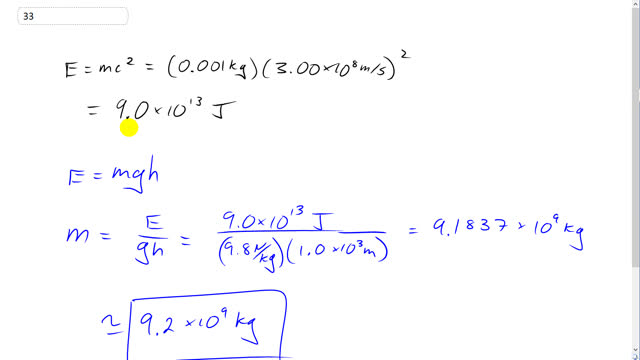 33
E = mc² = (0.001 kg)(3.00×10⁸ m/s)²
= 9.0×10¹³ J
E = mgh
m = E/gh = 9.0×10¹³ J/(9.8 N/kg)(1.0×10³ m) = 9.1837×10⁹ kg
≃ 9.2×10⁹ kg